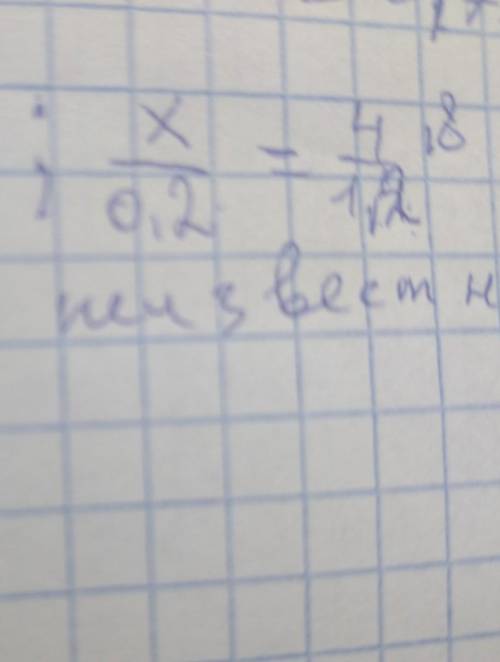 ; x/0,2 = 4,8/1,2
неизвестн